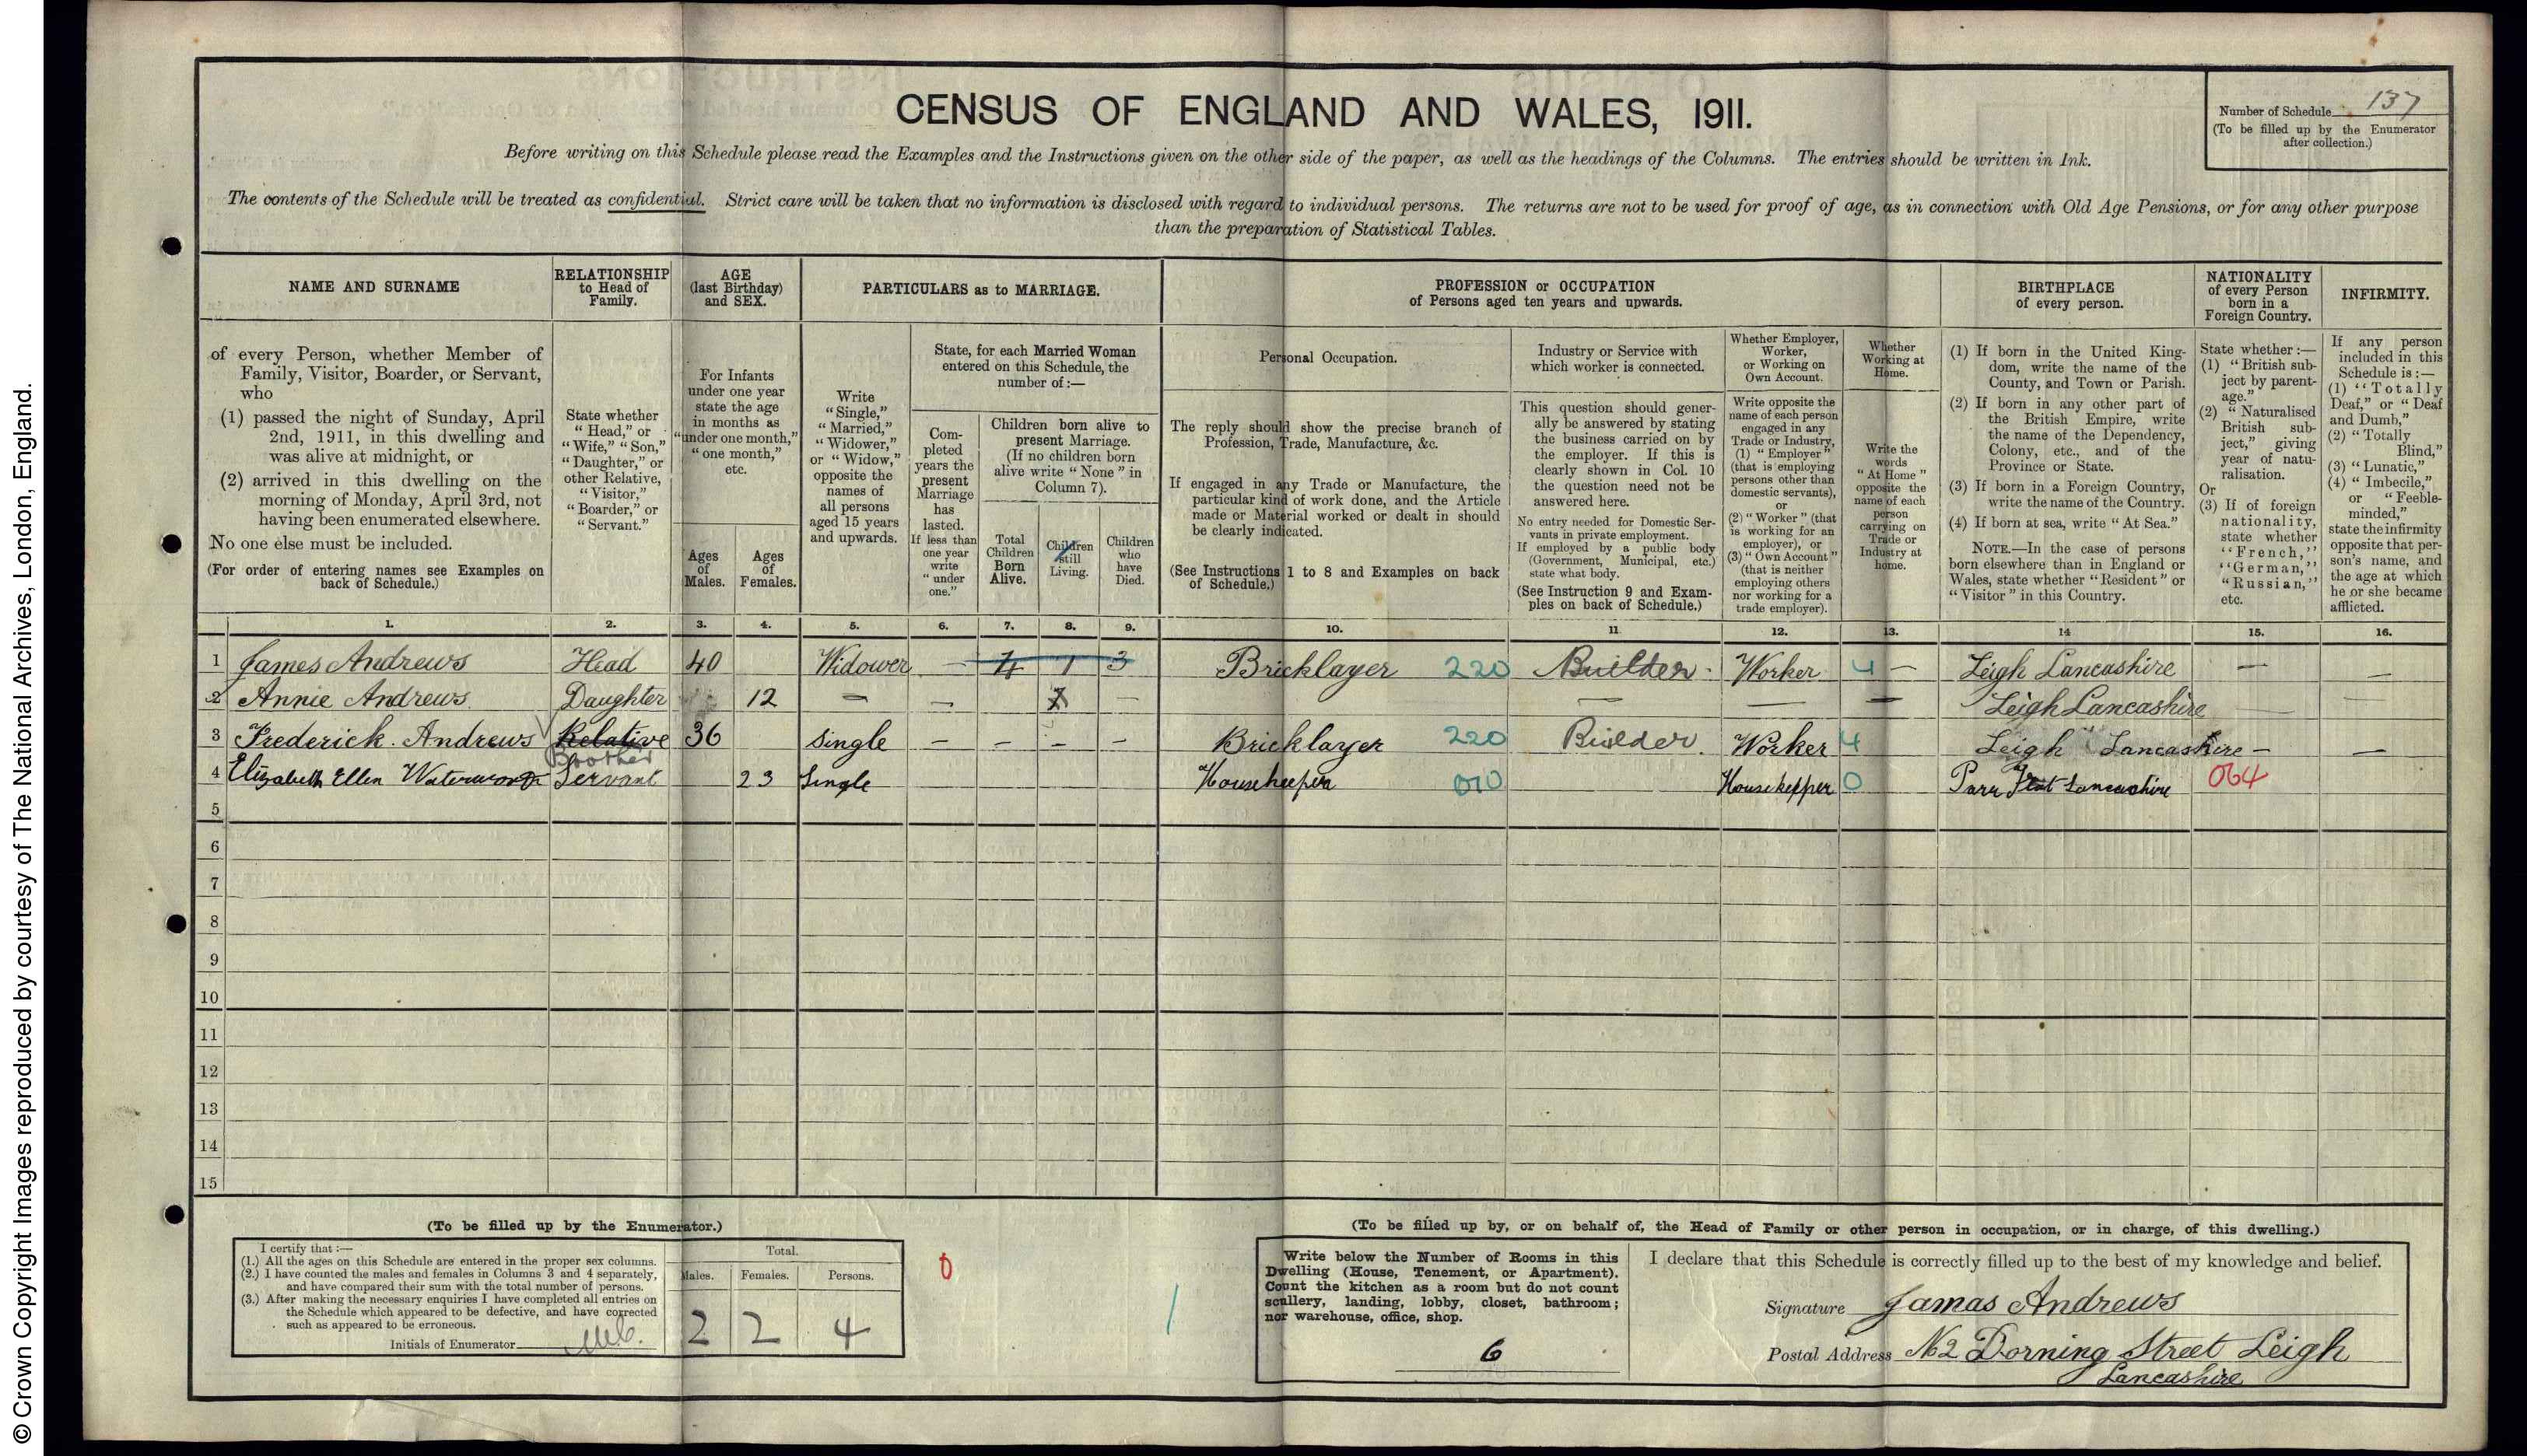 © Crown Copyright Images reproduced by courtesy of The National Archives, London, England.
CENSUS OF ENGLAND AND WALES, 1911.
Number of Schedule 137
(To be filled up by the Enumerator
after collection.)
Before writing on this Schedule please read the Examples and the Instructions given on the other side of the paper, as well as the headings of the Columns. The entries should be written in Ink.
The contents of the Schedule will be treated as confidential. Strict care will be taken that no information is disclosed with regard to individual persons. The returns are not to be used for proof of age, as in connection with Old Age Pensions, or for any other purpose
than the preparation of Statistical Tables.
NAME AND SURNAME
of every Person, whether Member of
Family, Visitor, Boarder, or Servant,
who
(1) passed the night of Sunday, April
2nd, 1911, in this dwelling and
was alive at midnight, or
(2) arrived in this dwelling on the
morning of Monday, April 3rd, not
having been enumerated elsewhere.
No one else must be included.
(For order of entering names see Examples on
back of Schedule.)
RELATIONSHIP
to Head of
Family.
State whether
"Head," or
"Wife," "Son,"
"Daughter," or
other Relative,
"Visitor,"
"Boarder," or
"Servant."
AGE
(last Birthday)
and SEX.
For Infants
under one year
state the age
in months as
"under one month,"
"one month,"
etc.
Ages
of
Males.
Ages
of
Females.
PARTICULARS as to MARRIAGE.
Write
"Single,"
"Married,"
"Widower,"
or "Widow,"
opposite the
names of
all persons
aged 15 years
and upwards.
State, for each Married Woman
entered on this Schedule, the
number of :—
Com-
pleted
years the
present
Marriage
has
lasted.
If less than
one year
write
"under
one."
Children born alive to
present Marriage.
(If no children born
alive write "None" in
Column 7).
Total
Children
Born
Alive.
Children
still
Living.
Children
who
have
Died.
PROFESSION or OCCUPATION
of Persons aged ten years and upwards.
Personal Occupation.
The reply should show the precise branch of
Profession, Trade, Manufacture, &c.
If engaged in any Trade or Manufacture, the
particular kind of work done, and the Article
made or Material worked or dealt in should
be clearly indicated.
(See Instructions 1 to 8 and Examples on back
of Schedule.)
Industry or Service with
which worker is connected.
This question should gener-
ally be answered by stating
the business carried on by
the employer. If this is
clearly shown in Col. 10
the question need not be
answered here.
No entry needed for Domestic Ser-
vants in private employment.
If employed by a public body
(Government, Municipal, etc.)
state what body.
(See Instruction 9 and Exam-
ples on back of Schedule.)
Whether Employer,
Worker,
or Working on
Own Account.
Write opposite the
name of each person
engaged in any
Trade or Industry,
(1) "Employer"
(that is employing
persons other than
domestic servants),
or
(2) "Worker" (that
is working for an
employer), or
(3) "Own Account"
(that is neither
employing others
nor working for a
trade employer).
Whether
Working at
Home.
Write the
words
"At Home"
opposite the
name of each
person
carrying on
Trade or
Industry at
home.
BIRTHPLACE
of every person.
(1) If born in the United King-
dom, write the name of the
County, and Town or Parish.
(2) If born in any other part of
the British Empire, write
the name of the Dependency,
Colony, etc., and of the
Province or State.
(3) If born in a Foreign Country,
write the name of the Country.
(4) If born at sea, write "At Sea."
NOTE.—In the case of persons
born elsewhere than in England or
Wales, state whether "Resident" or
"Visitor" in this Country.
NATIONALITY
of every Person
born in a
Foreign Country.
State whether :—
(1) "British sub-
ject by parent-
age."
(2) "Naturalised
British sub-
ject," giving
year of natu-
ralisation.
Or
(3) If of foreign
nationality,
state whether
"French,"
"German,"
"Russian,"
etc.
INFIRMITY.
If any person
included in this
Schedule is :—
(1) "Totally
Deaf," or "Deaf
and Dumb,"
(2) "Totally
Blind,"
(3) "Lunatic,"
(4) "Imbecile,"
or "Feeble-
minded,"
state the infirmity
opposite that per-
son's name, and
the age at which
he or she became
afflicted.
1. 2. 3. 4. 5. 6. 7. 8. 9. 10. 11 12. 13. 14 15. 16.
1 James Andrews Head 40 Widower — 4 1 3 Bricklayer 220 Builder. Worker 4 — Leigh Lancashire — —
2 Annie Andrews Daughter 12 — — — — — — Leigh Lancashire
3 Frederick. Andrews Relative 36 Single — — — — Bricklayer 220 Builder. Worker 4 Leigh Lancashire — —
Brother
4 Elizabeth Ellen Waterworth Servant 23 Single Housekeeper 010 Housekepper 0 Parr Lancashire 064
5
6
7
8
9
10
11
12
13
14
15
(To be filled up by the Enumerator.)
I certify that :—
(1.) All the ages on this Schedule are entered in the proper sex columns.
(2.) I have counted the males and females in Columns 3 and 4 separately,
and have compared their sum with the total number of persons.
(3.) After making the necessary enquiries I have completed all entries on
the Schedule which appeared to be defective, and have corrected
such as appeared to be erroneous.
Initials of Enumerator
Total.
Males. Females. Persons.
2 2 4
0
(To be filled up by, or on behalf of, the Head of Family or other person in occupation, or in charge, of this dwelling.)
Write below the Number of Rooms in this
Dwelling (House, Tenement, or Apartment).
Count the kitchen as a room but do not count
scullery, landing, lobby, closet, bathroom;
nor warehouse, office, shop.
6
I declare that this Schedule is correctly filled up to the best of my knowledge and belief.
Signature Jamas Andrews
Postal Address No 2 Dorning Street Leigh
Lancashire